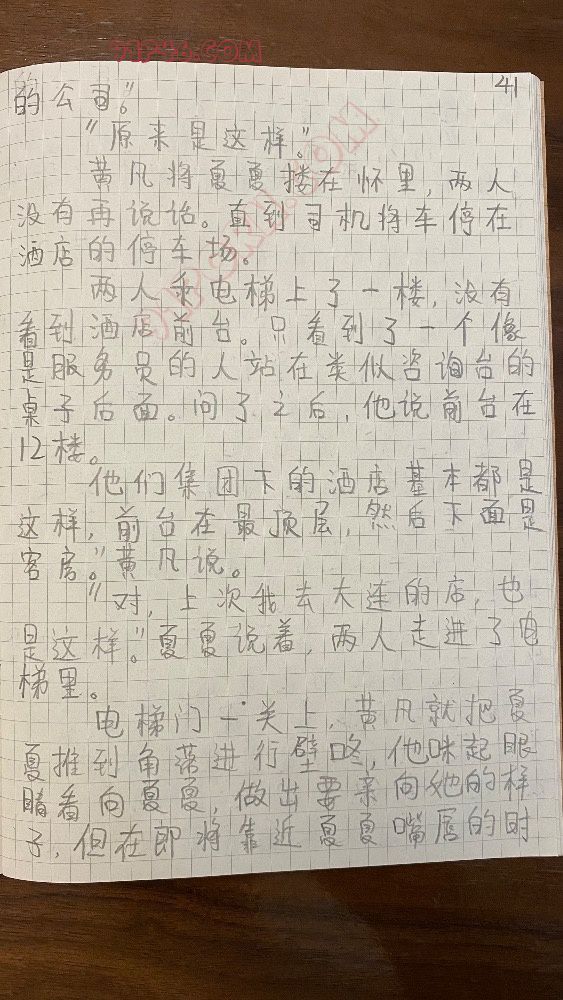 41
的公司。”
“原来是这样。”
黄凡将夏夏搂在怀里，两人
没有再说话。直到司机将车停在
酒店的停车场。
两人乘电梯上了一楼，没有
看到酒店前台。只看到了一个像
是服务员的人站在类似咨询台的
桌子后面。问了之后，他说前台在
12楼。
他们集团下的酒店基本都是
这样，前台在最顶层，然后下面是
客房。”黄凡说。
“对，上次我去大连的店，也
是这样。”夏夏说着，两人走进了电
梯里。
电梯门一关上，黄凡就把夏
夏推到角落进行壁咚，他眯起眼
睛看向夏夏，做出要亲向她的样
子，但在即将靠近夏夏嘴唇的时